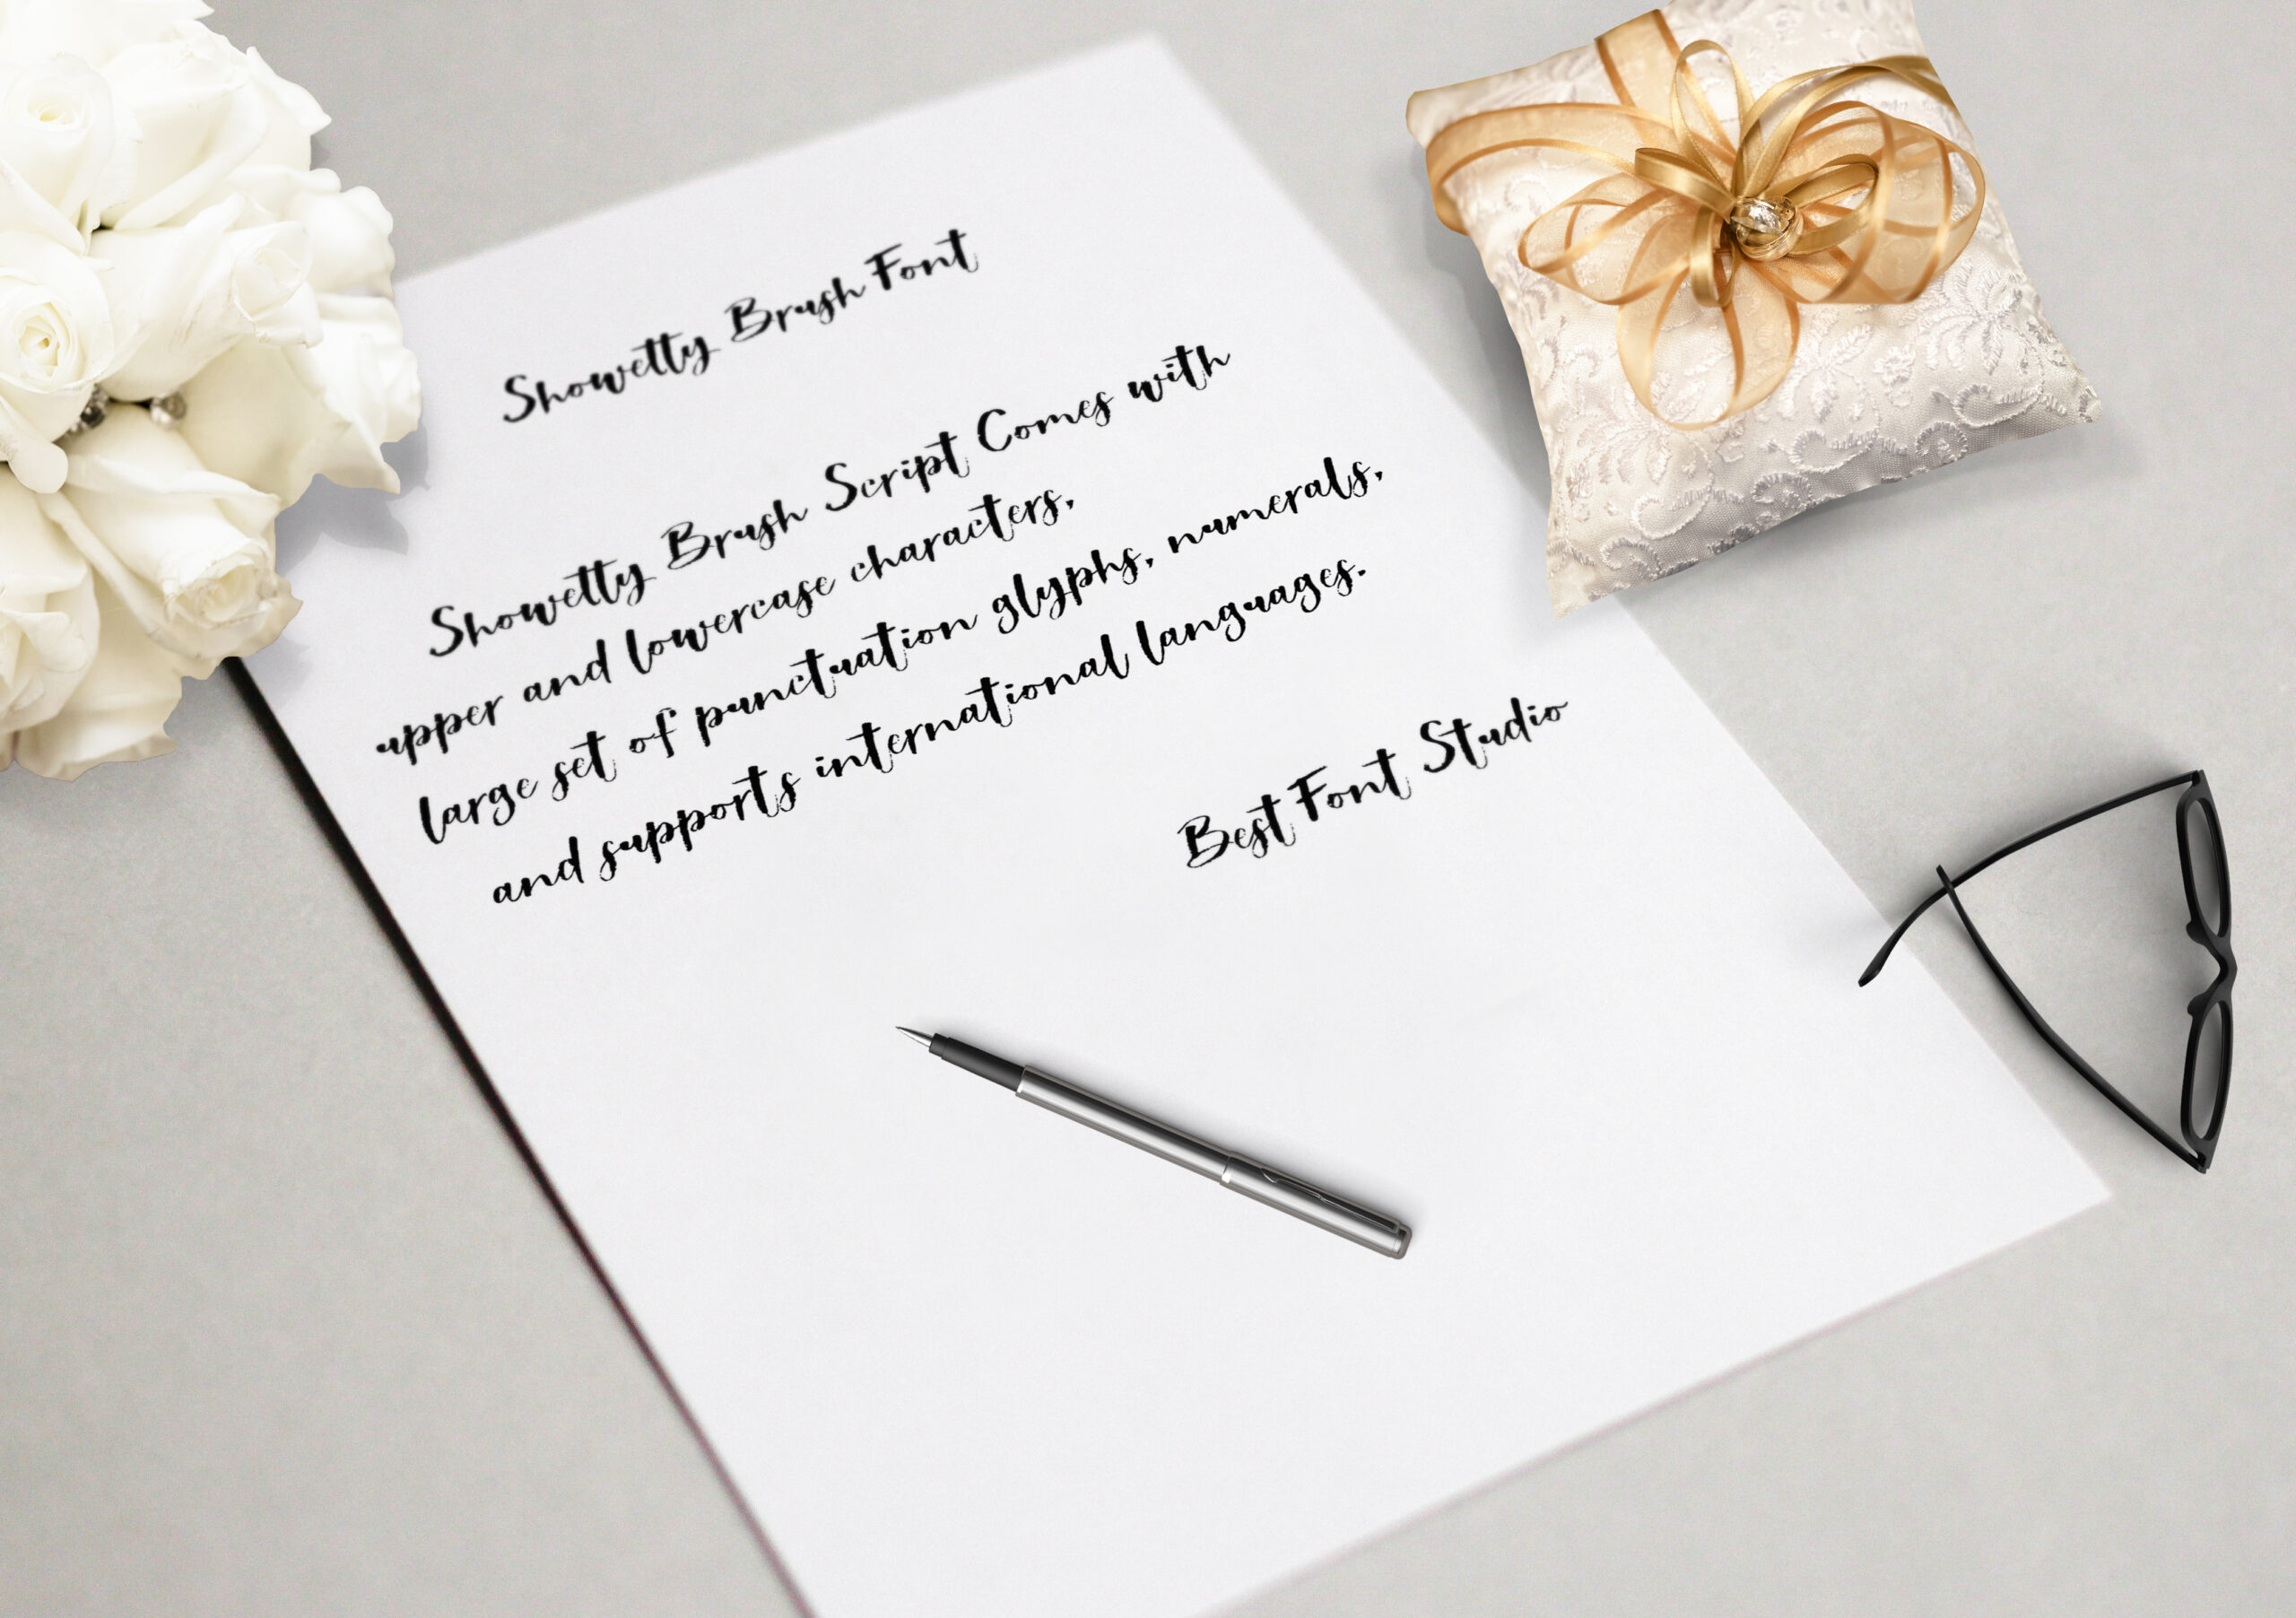 Showetty Brush Font
Showetty Brush Script Comes with
upper and lowercase characters,
large set of punctuation glyphs, numerals,
and supports international languages.
Best Font Studio